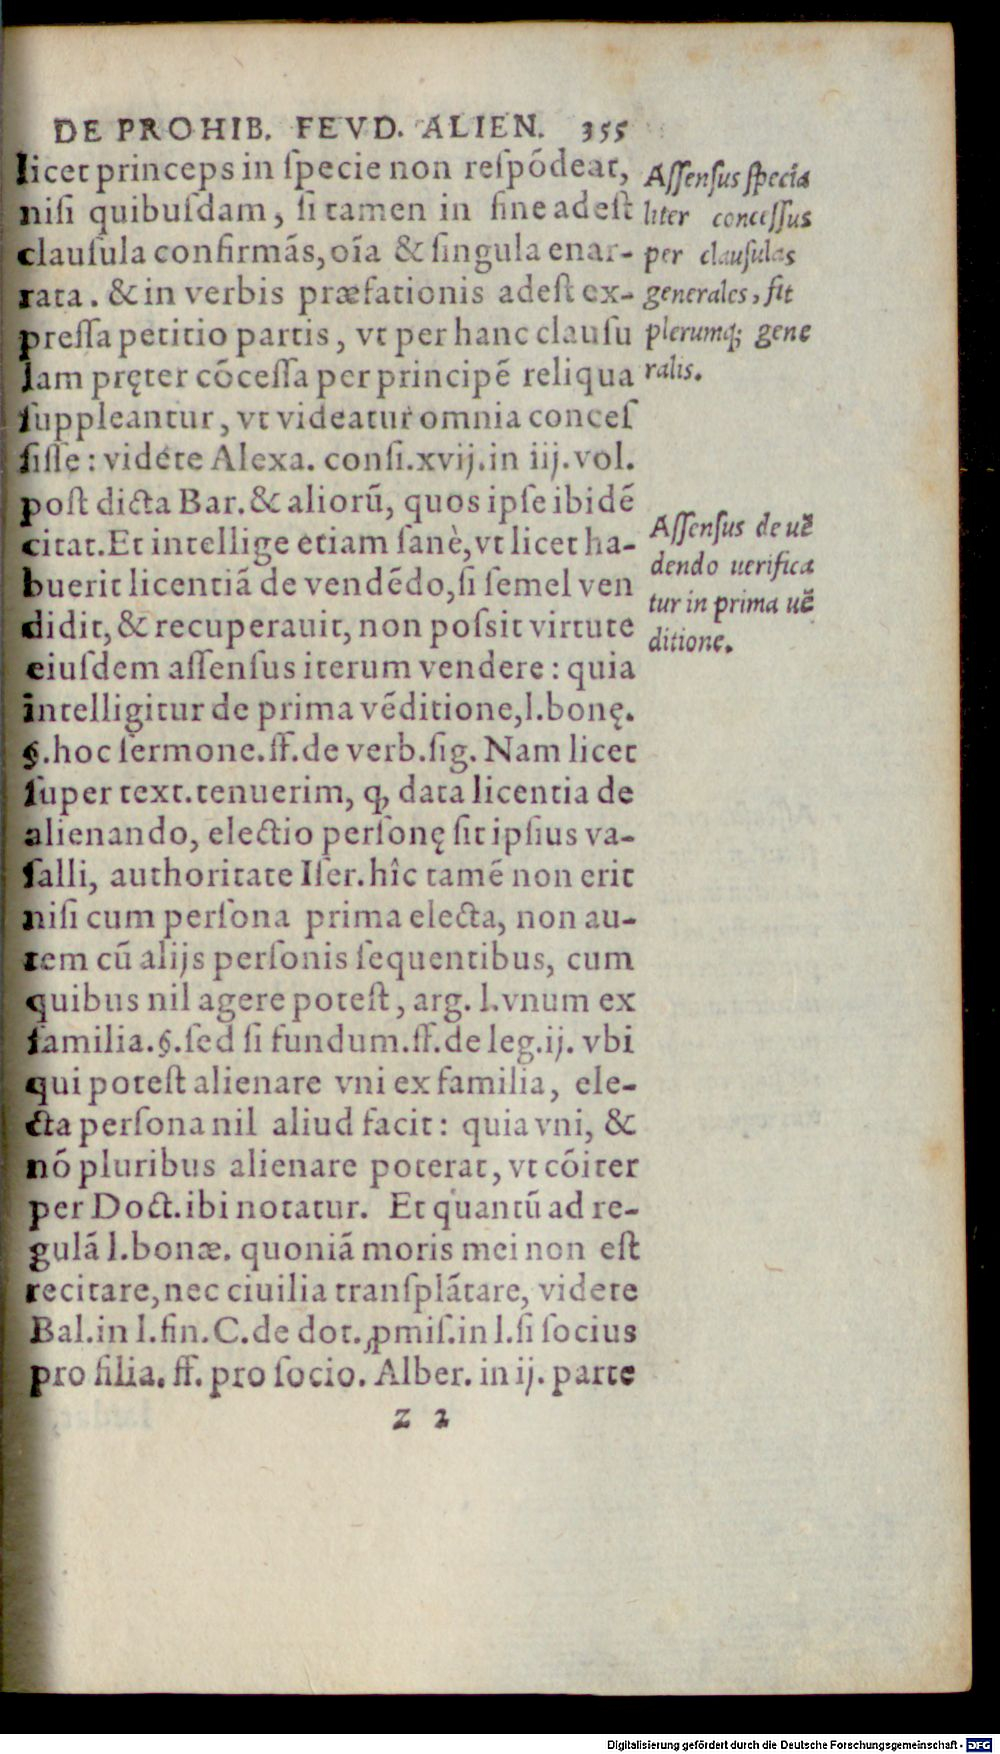 DE PROHIB. FEVD. ALIEN. 355
licet princeps in ſpecie non reſpõdeat,
niſi quibuſdam, ſi tamen in fine adeſt
clauſula confirmãs, oĩa & ſingula enar-
rata. & in verbis præfationis adeſt ex-
preſſa petitio partis, vt per hanc clauſu
lam pręter cõceſſa per principẽ reliqua
ſuppleantur, vt videatur omnia conceſ
ſiſſe: videte Alexa. conſi.xvij.in iij.vol.
poſt dicta Bar.& aliorũ, quos ipſe ibidẽ
citat.Et intellige etiam ſanè,vt licet ha-
buerit licentiã de vendẽdo,ſi ſemel ven
didit, & recuperauit, non poſsit virtute
eiuſdem aſſenſus iterum vendere: quia
intelligitur de prima vẽditione,l.bonę.
§.hoc ſermone.ff.de verb.ſig. Nam licet
ſuper text.tenuerim, ꝙ data licentia de
alienando, electio perſonę ſit ipſius va-
ſalli, authoritate Iſer.hîc tamẽ non erit
niſi cum perſona prima electa, non au-
tem cũ alijs perſonis ſequentibus, cum
quibus nil agere poteſt, arg. l.vnum ex
familia.§.ſed ſi fundum.ff.de leg.ij. vbi
qui poteſt alienare vni ex familia, ele-
cta perſona nil aliud facit: quia vni, &
nõ pluribus alienare poterat, vt cõiter
per Doct.ibi notatur. Et quantũ ad re-
gulã l.bonæ. quoniã moris mei non eſt
recitare,nec ciuilia tranſplãtare, videte
Bal.in l.fin.C.de dot.ꝓmiſ.in l.ſi ſocius
pro filia. ff. pro ſocio. Alber. in ij. parte
Z 2
Aſſenſus ſpecia
liter conceſſus
per clauſulas
generales, fit
plerumq; gene
ralis.
Aſſenſus de uẽ
dendo uerifica
tur in prima uẽ
ditione.
Digitalisierung gefördert durch die Deutsche Forschungsgemeinschaft - DFG